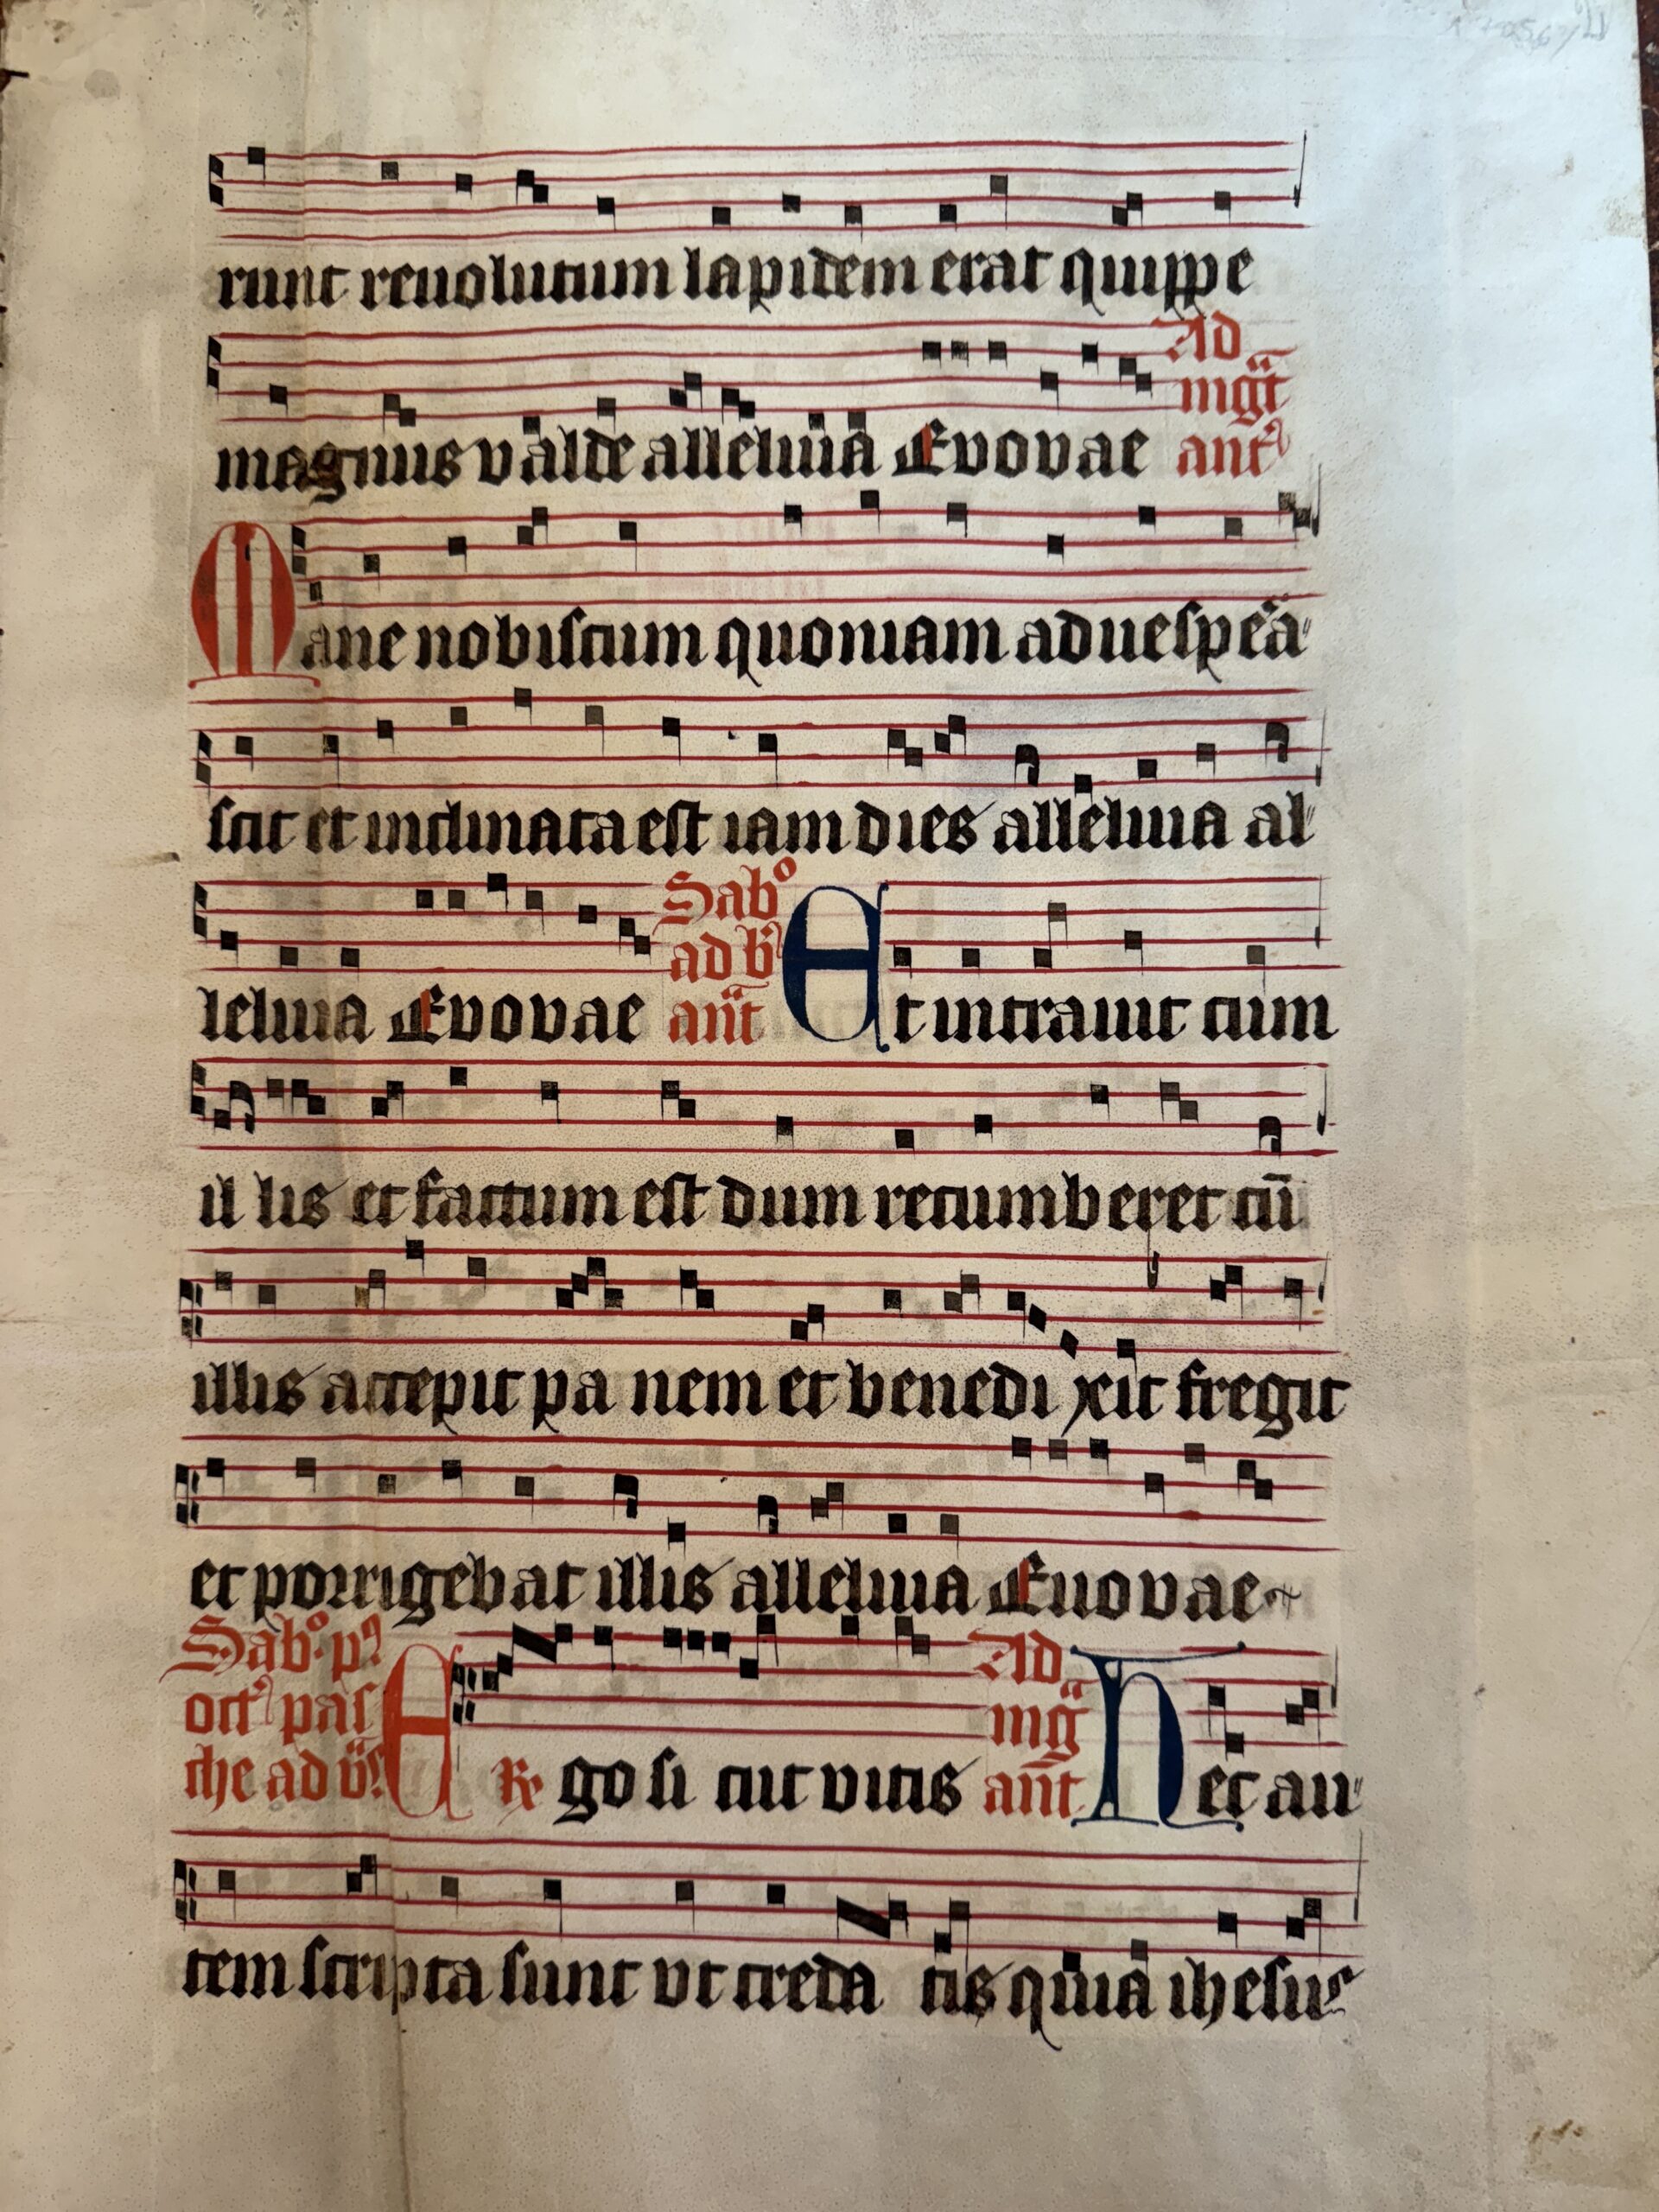 runt reuolutum lapidem erat quippe
magnus valde alleluia Evovae Ad mgt ant
Mane nobiscum quoniam aduespea
scit et inclinata est iam dies alleluia al
leluia Evovae Sabo ad b ant Et intrauit cum
il lis et factum est dum recumberet cū
illis accepit pa nem et benedi xit fregit
et porrigebat illis alleluia Euovae
Sabo. p octa pas che ad vs E R go si cut vitis Ad mg ant Hec au
tem scripta sunt vt creda tis quia ihesus